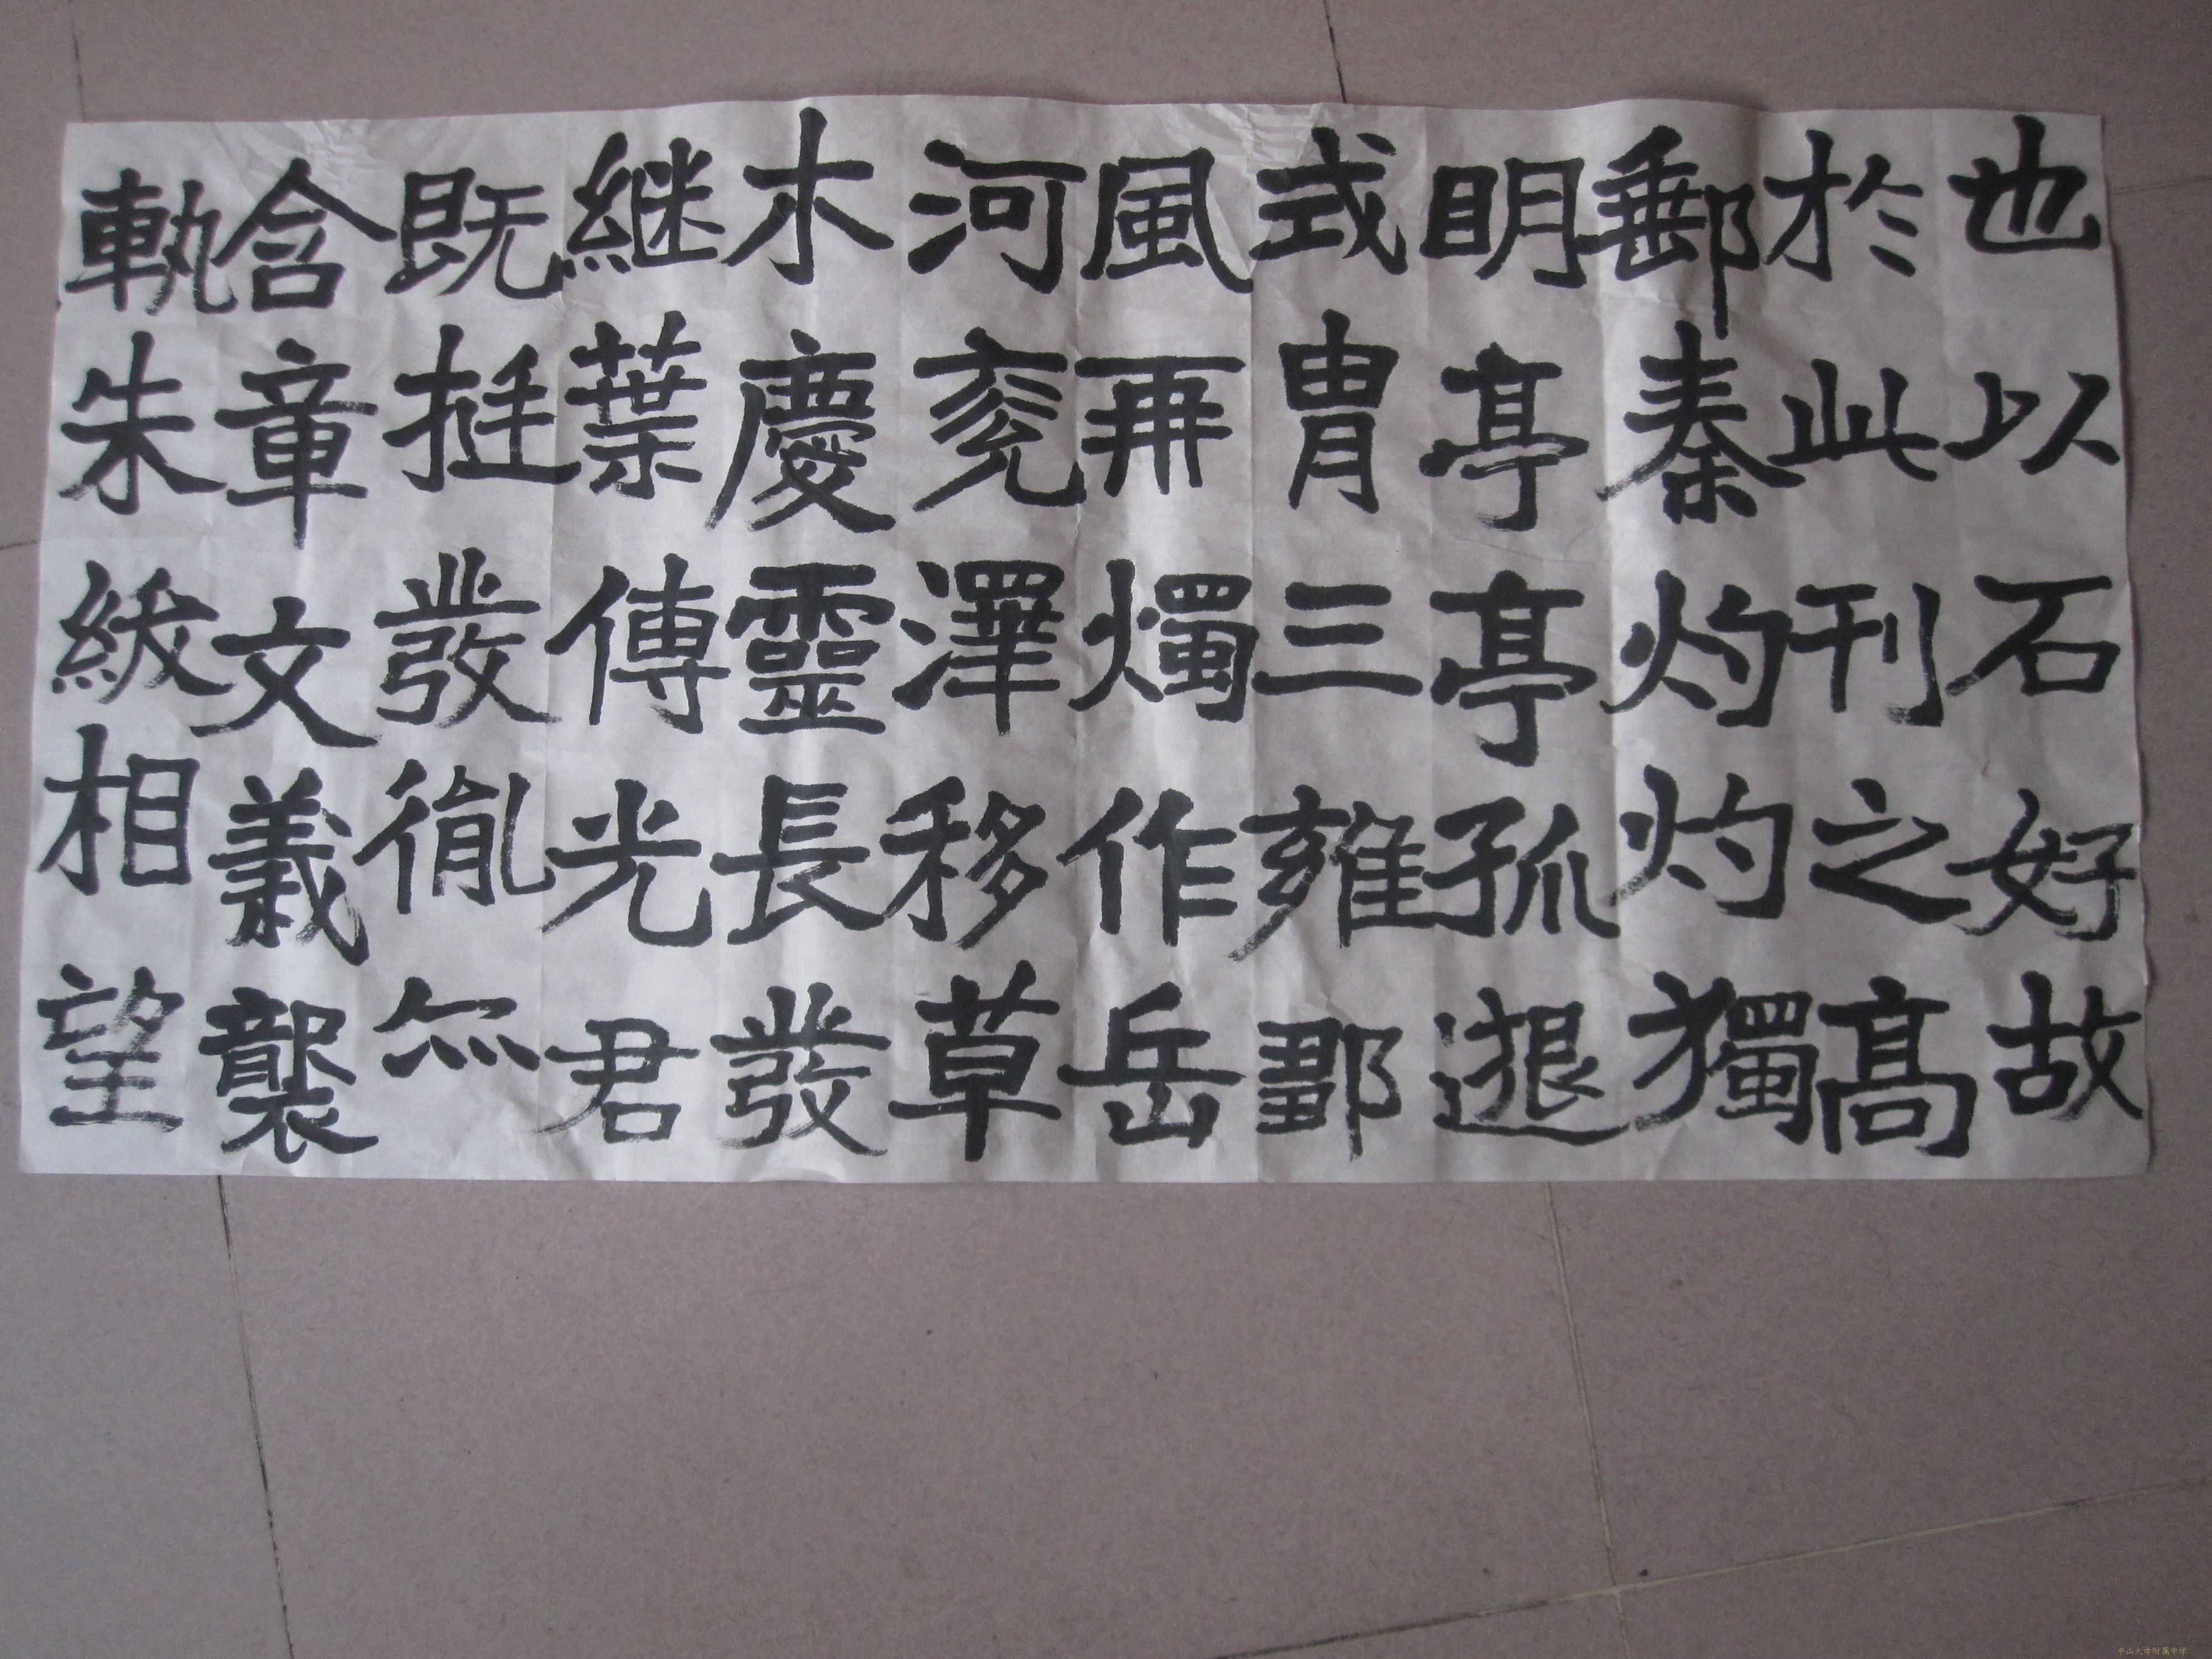 也以石好故
於此刊之高
郵秦灼灼獨
明亭亭孤邈
式胄三雍鄒
風再燭作岳
河兗澤移草
木慶靈長發
継葉傳光君
既挺發胤亦
含章文義襲
軌朱紱相望
中山大学附属中学